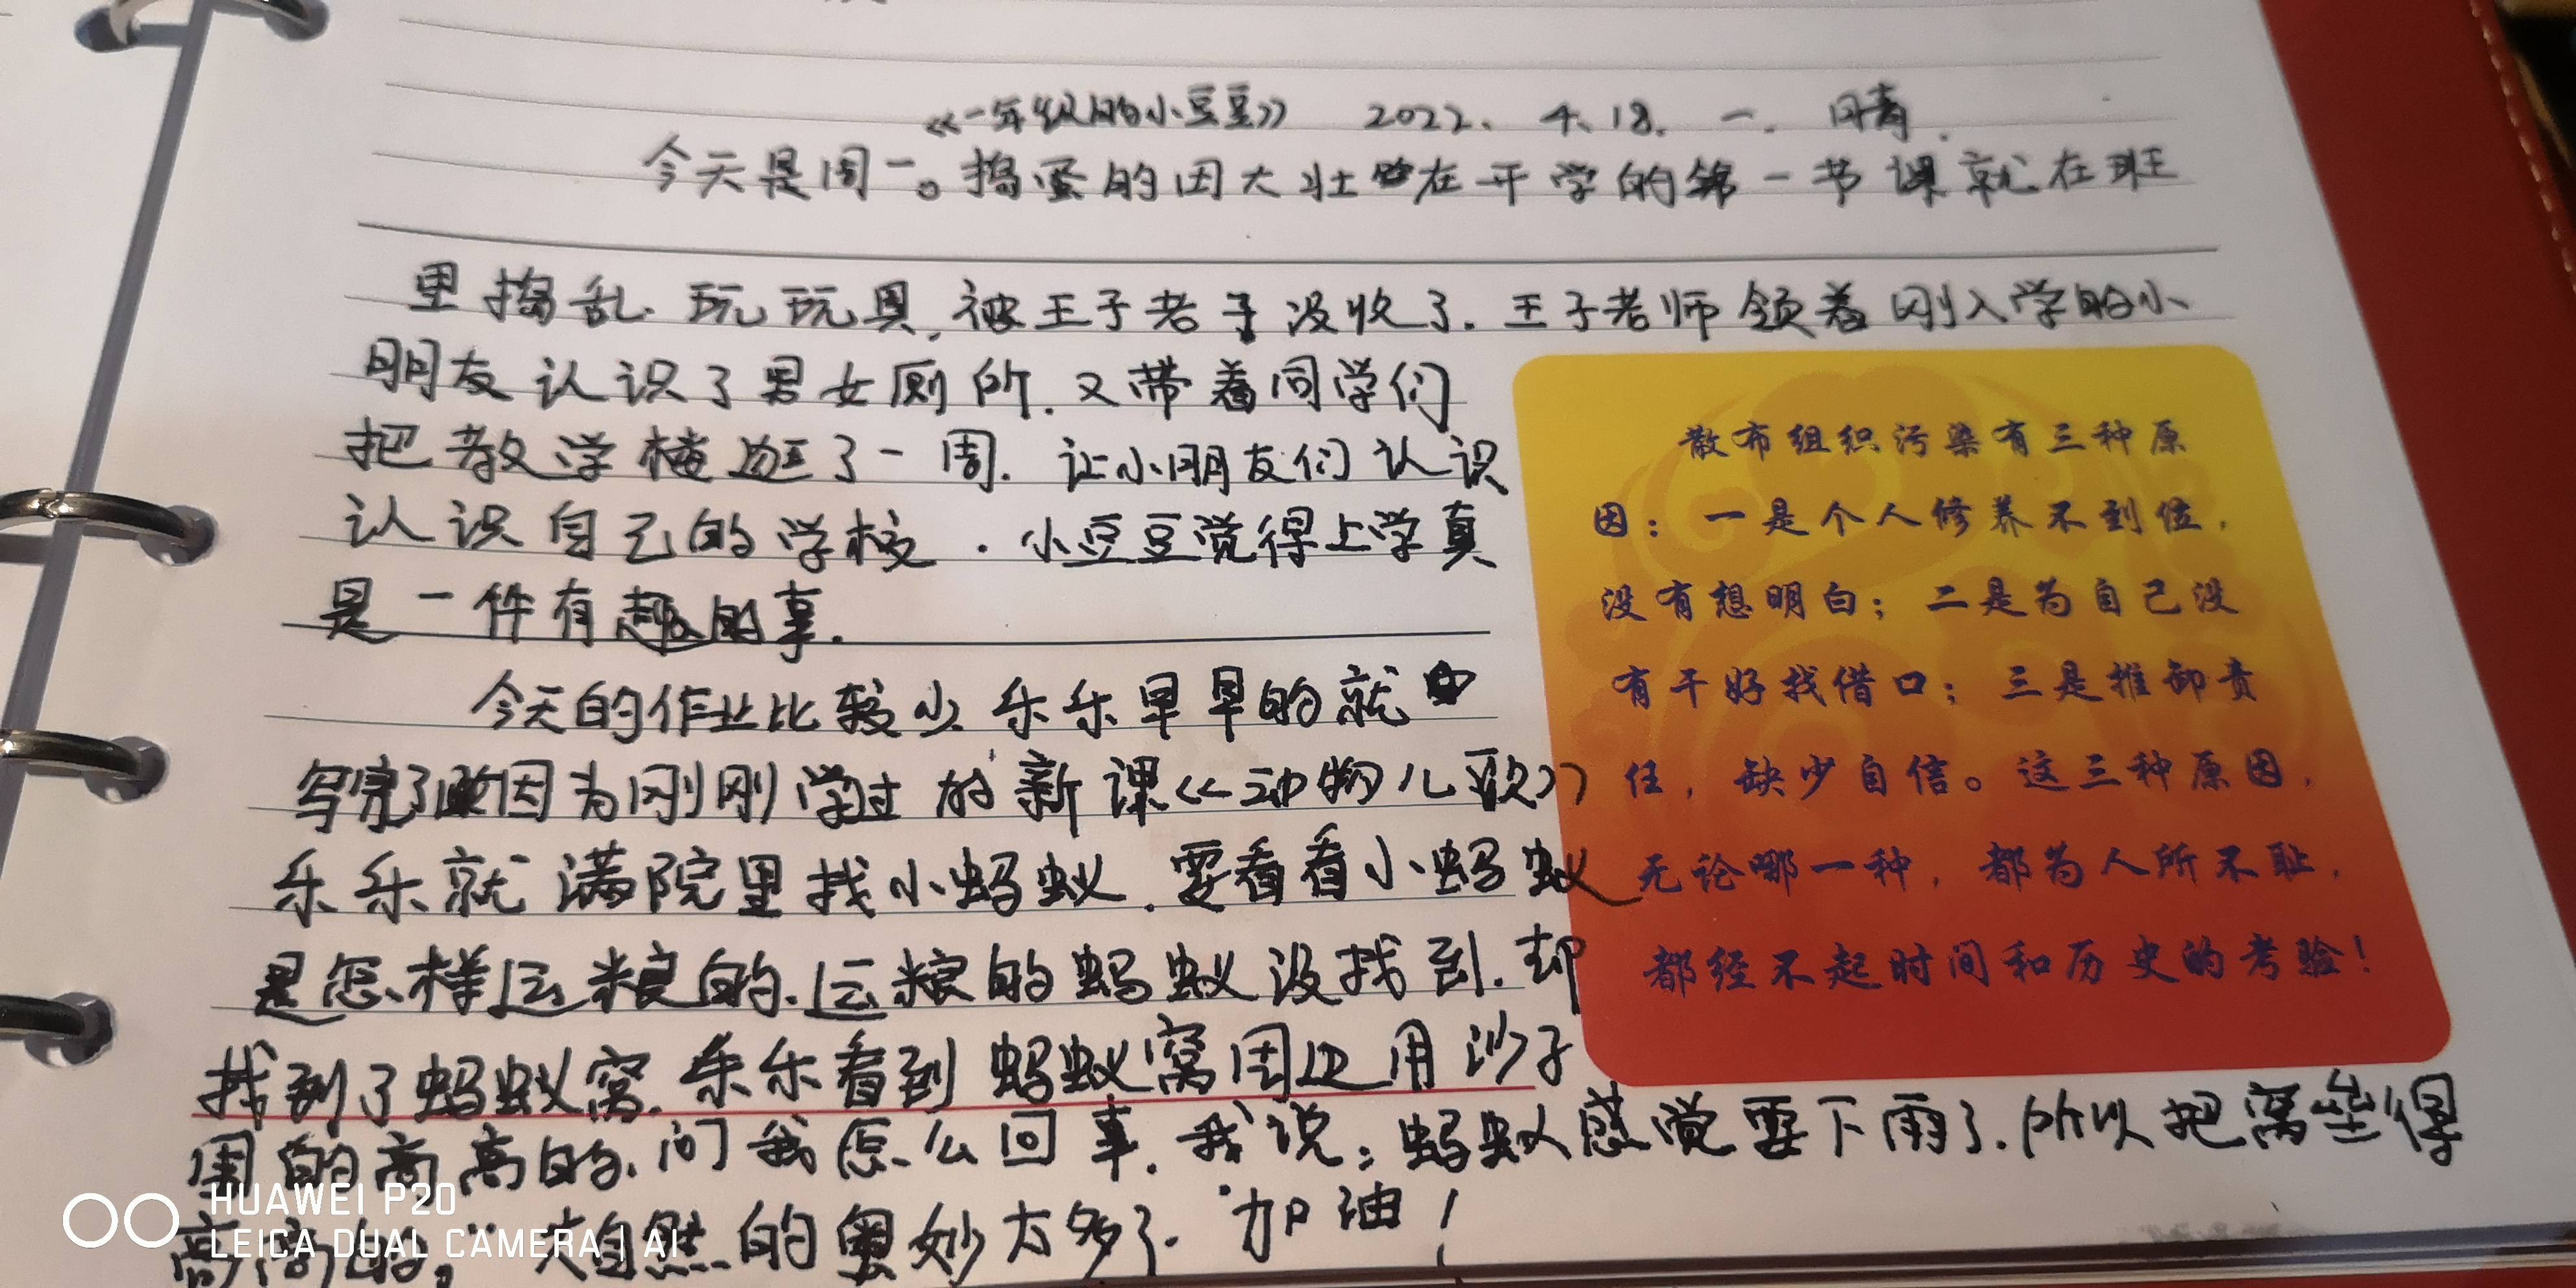 《一年级的小豆豆》 2022. 4.18. 一. 晴.
今天是周一。捣蛋的田大壮在开学的第一节课就在班
里捣乱.玩玩具,被王子老子没收了.王子老师领着刚入学的小
朋友认识了男女厕所.又带着同学们
把教学楼逛了一周.让小朋友们认识
认识自己的学校.小豆豆觉得上学真
是一件有趣的事.
今天的作业比较少.乐乐早早的就
写完了因为刚刚学过的新课《动物儿歌》
乐乐就满院里找小蚂蚁.要看看小蚂蚁
是怎样运粮的.运粮的蚂蚁没找到.却
找到了蚂蚁窝.乐乐看到蚂蚁窝周边用沙子
围的高高的.问我怎么回事.我说:蚂蚁感觉要下雨了.所以把窝垒得
高高的。"大自然的奥妙太多了.加油!
散布组织污染有三种原
因：一是个人修养不到位，
没有想明白；二是为自己没
有干好找借口；三是推卸责
任，缺少自信。这三种原因，
无论哪一种，都为人所不耻，
都经不起时间和历史的考验！
HUAWEI P20
LEICA DUAL CAMERA | AI